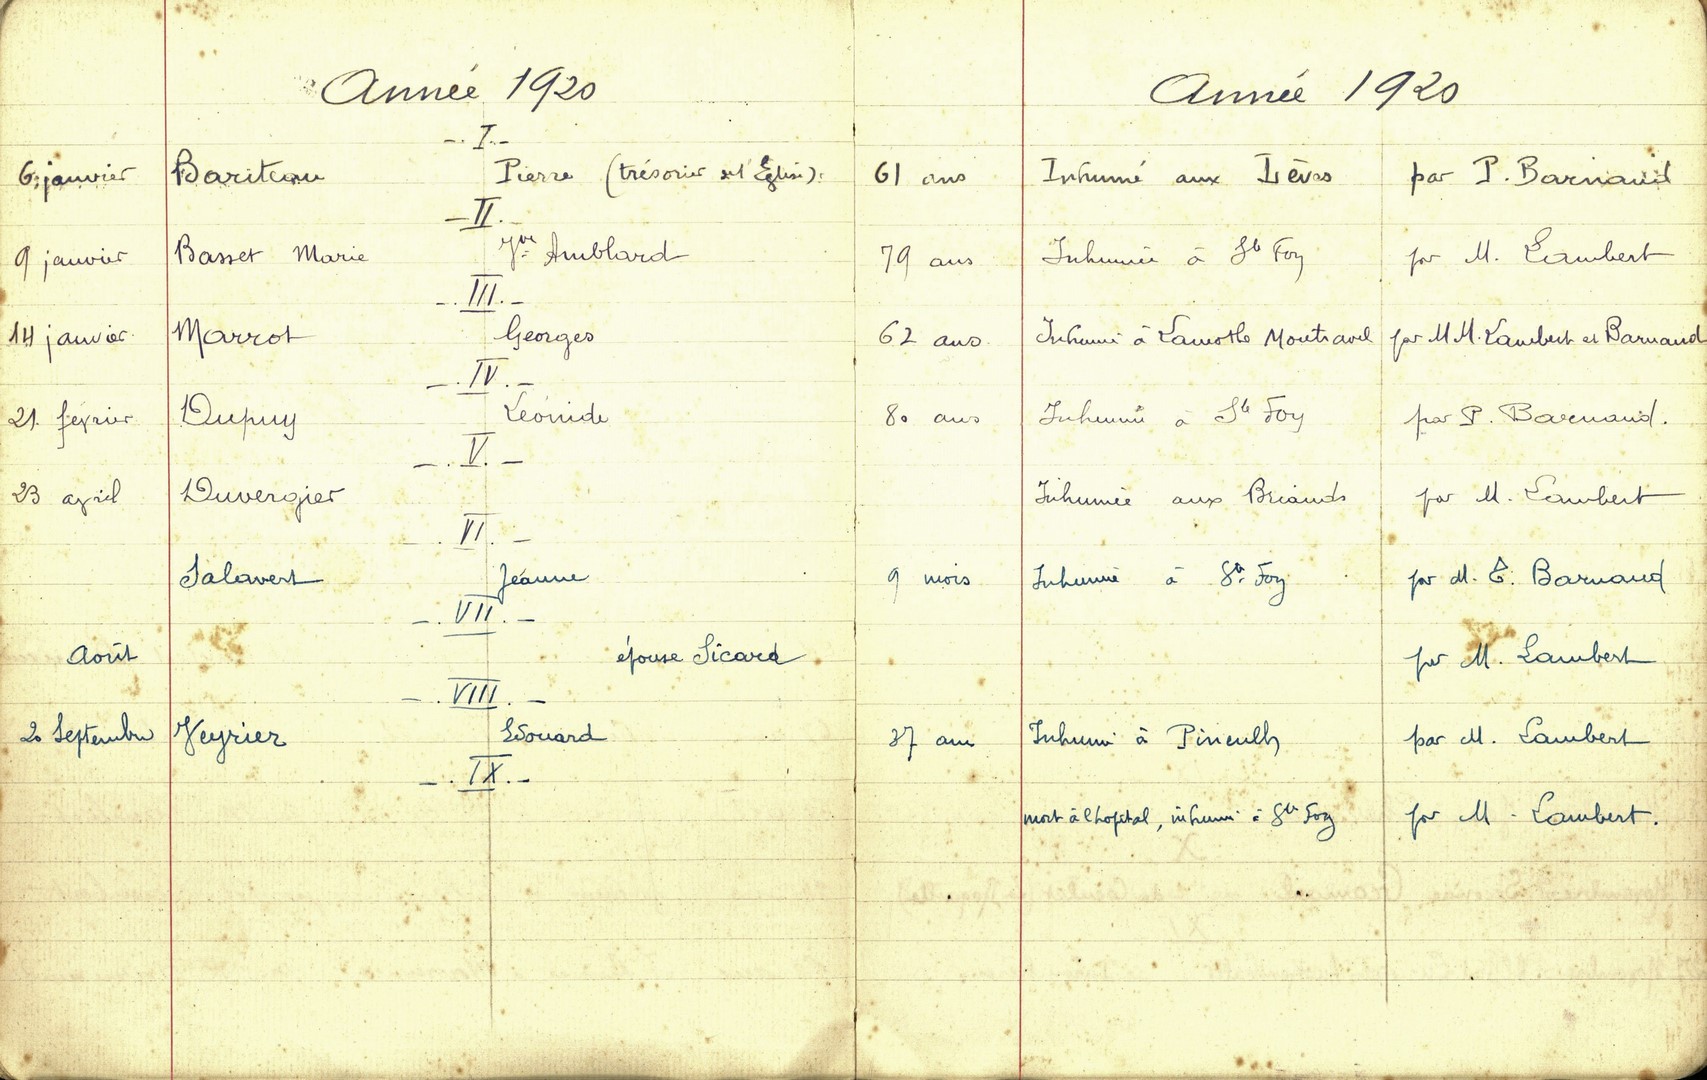 Année 1920 Année 1920
- . I. -
6 janvier Bariteau Pierre (trésorier de l'Église). 61 ans Inhumé aux Lèves par P. Barnaud
- II. -
9 janvier Basset Marie Vve Amblard 79 ans Inhumée à Ste Foy par M. Lambert
- . III. -
14 janvier Marrot Georges 62 ans. Inhumé à Lamothe Montravel par M M. Lambert et Barnaud
- . IV. -
21 février Dupuy Léonide 80 ans Inhumé à Ste Foy par P. Barnaud.
- . V. -
23 avril Duvergier Inhumée aux Briands par M. Lambert
- . VI. -
Salavert Jeanne 9 mois Inhumé à Ste Foy par M. E. Barnaud
- . VII. -
Août épouse Sicard par M. Lambert
- . VIII. -
20 Septembre Veyrier Édouard 37 ans Inhumé à Pineuilh par M. Lambert
- . IX. -
mort à l'hopital, inhumé à Ste Foy par M. Lambert.